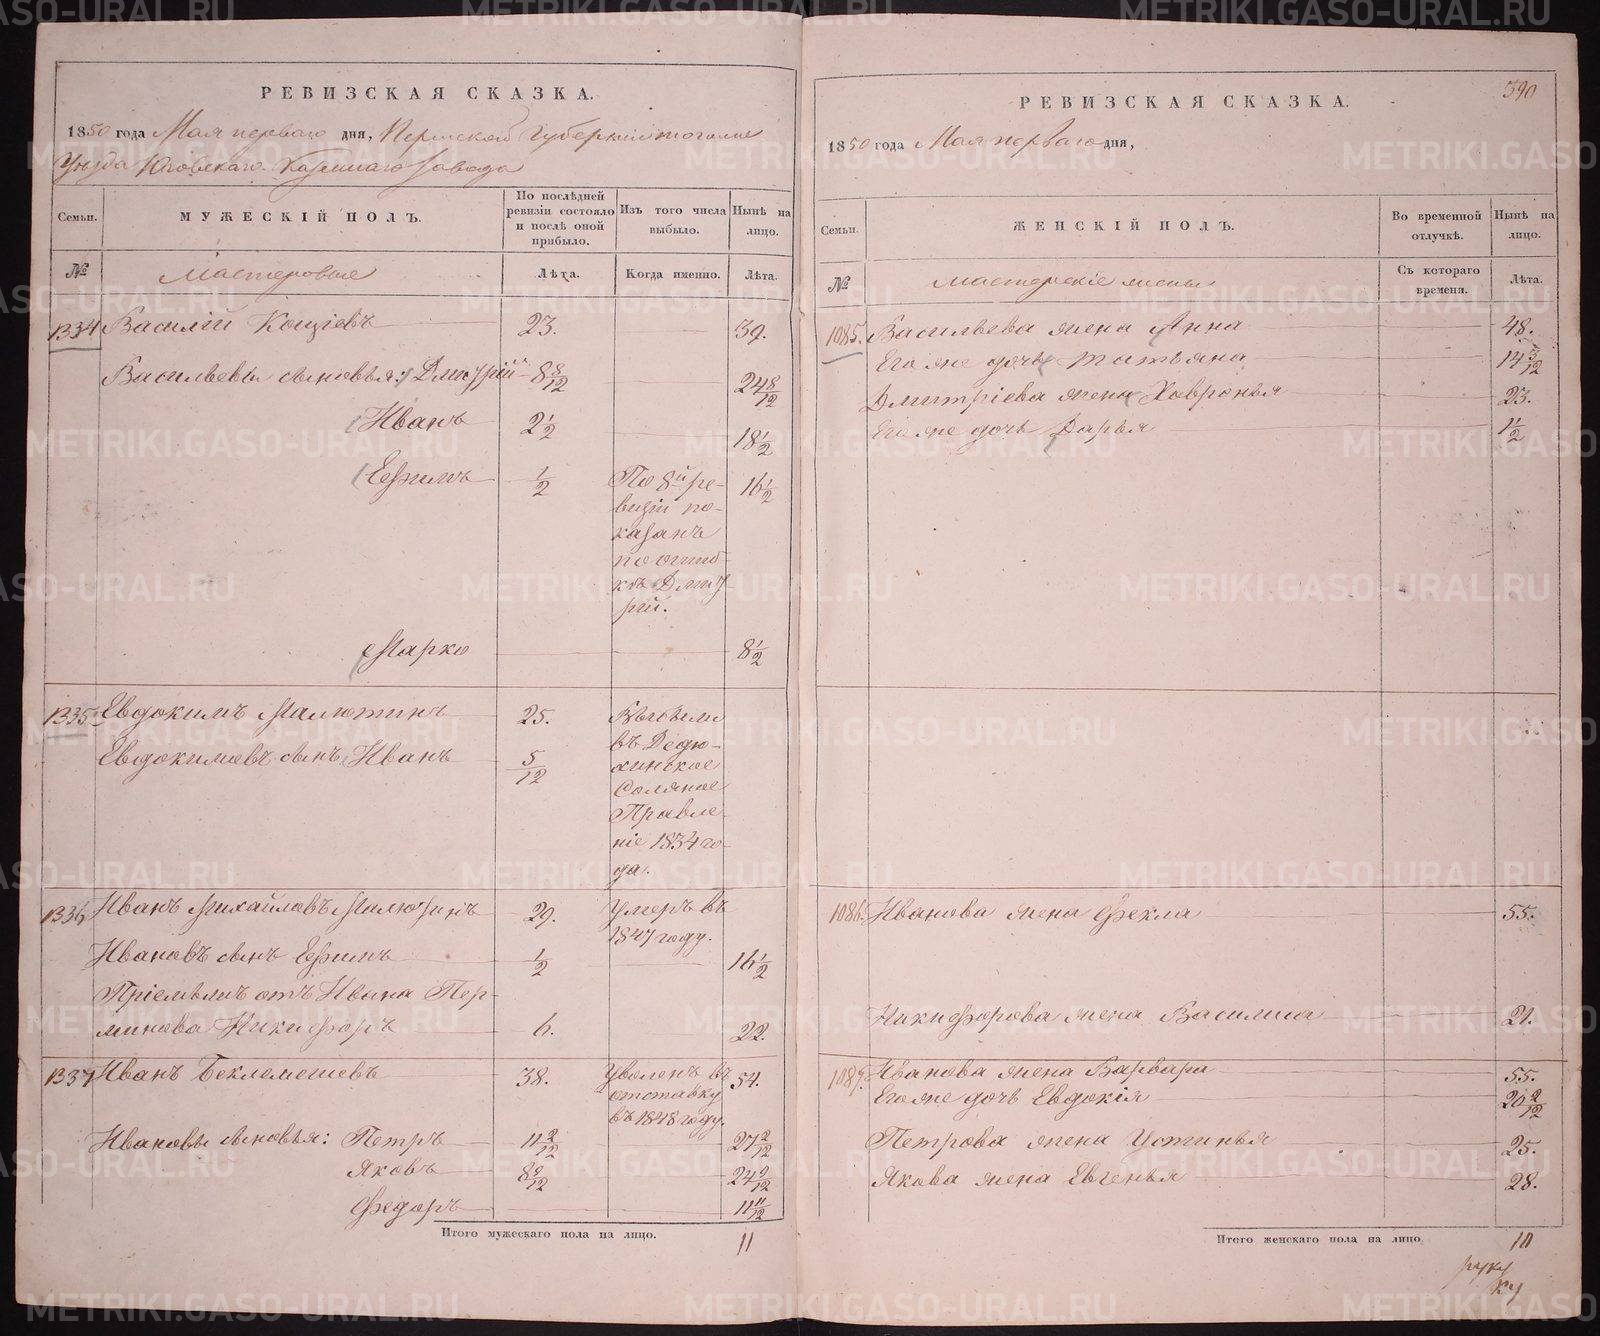 РЕВИЗСКАЯ СКАЗКА.
1850 года Мая перваго дня, Пермской Губернии тогоже
Уезда Юговскаго Казеннаго Завода
Семьи. МУЖЕСКІЙ ПОЛЪ. По послѣдней ревизіи состояло и послѣ оной прибыло. Изъ того числа выбыло. Нынѣ на лицо.
№ Мастеровые Лѣта. Когда именно. Лѣта.
1334 Василій 23. 39.
Васильевы сыновья: Дмитрій 8 8/12 24 8/12
Иванъ 2 1/2 18 1/2
Ефимъ 1/2 По 8й ре- 16 1/2
визіи по-
казанъ
по ошиб-
кѣ Дмит-
рій.
Марко 8 1/2
1335 Евдокимъ Малютинъ 25. 
Евдокимовъ сынъ Иванъ 5/12 въ Дедю-
хинское
Соляное
Правле-
ніе 1834 го-
да.
1336 Иванъ Михайловъ Малютинъ 29. Умеръ въ
1847 году.
Ивановъ сынъ Ефимъ 1/2 16 1/2
Пріемышъ отъ Ивана Пер-
минова Никифоръ 6. 22.
1337 Иванъ Беклемешевъ 38. Уволенъ въ 54.
отставку
въ 1848 году.
Ивановы сыновья: Петръ 11 2/12 27 2/12
Яковъ 8 9/12 24 9/12
Федоръ 11 11/12
Итого мужескаго пола на лицо. 11
390
РЕВИЗСКАЯ СКАЗКА.
1850 года Мая перваго дня,
Семьи. ЖЕНСКІЙ ПОЛЪ. Во временной отлучкѣ. Нынѣ на лицо.
№ Мастерскіе жены Съ котораго времени. Лѣта.
1085. Васильева жена Анна 48.
Его же дочь Татьяна 14 3/12
Дмитріева жена Хавронья 23.
Его же дочь Дарья 1 1/2
1086. Иванова жена Фекла 55.
Никифорова жена Василиса 21.
1087. Иванова жена Варвара 55.
Его же дочь Евдокія 20 2/12
Петрова жена Устинья 25.
Якова жена Евгенья 28.
Итого женскаго пола на лицо. 10
METRIKI.GASO-URAL.RU